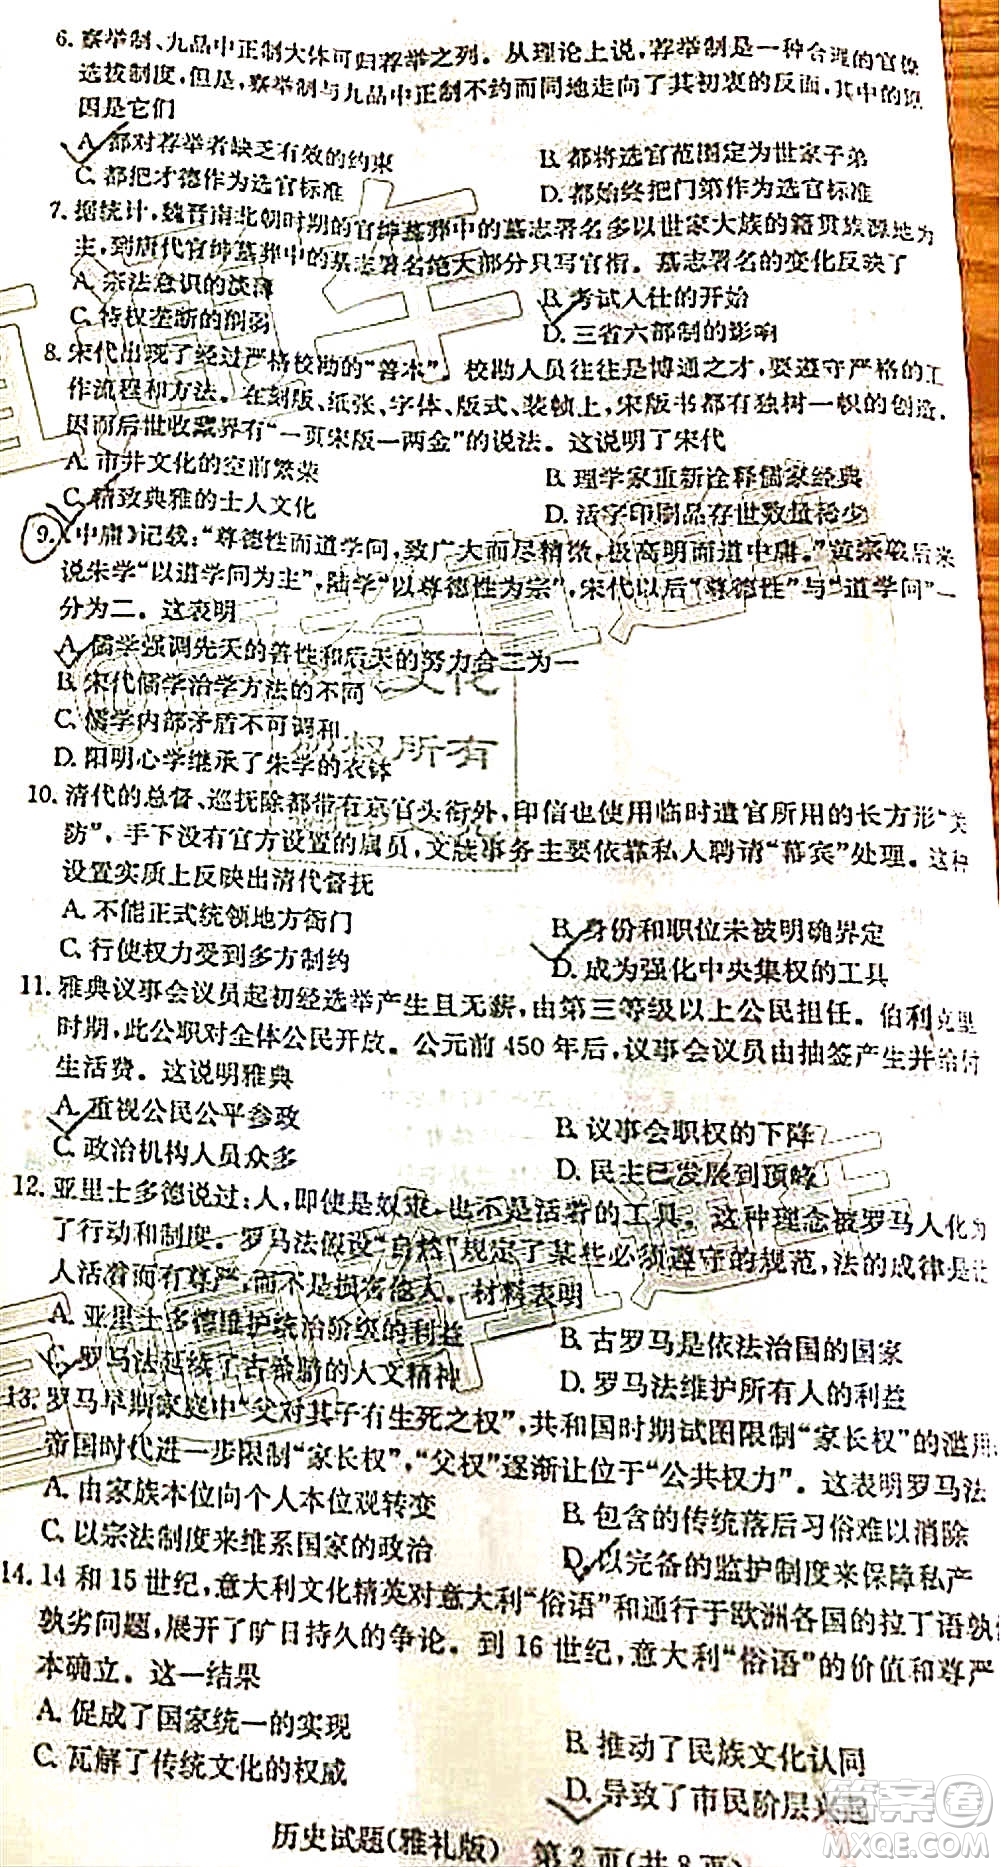 6. 察举制、九品中正制大体可归荐举之列。从理论上说，荐举制是一种合理的官僚
选拔制度，但是，察举制与九品中正制不约而同地走向了其初衷的反面，其中的原
因是它们
A. 都对荐举者缺乏有效的约束
B. 都将选官范围定为世家子弟
C. 都把才德作为选官标准
D. 都始终把门第作为选官标准
7. 据统计，魏晋南北朝时期的官绅墓葬中的墓志署名多以世家大族的籍贯族源地为
主，到唐代官绅墓葬中的墓志署名绝大部分只写官衔。墓志署名的变化反映了
A. 宗法意识的淡薄
B. 考试入仕的开始
C. 特权垄断的削弱
D. 三省六部制的影响
8. 宋代出现了经过严格校勘的“善本”，校勘人员往往是博通之才，要遵守严格的工
作流程和方法。在刻版、纸张、字体、版式、装帧上，宋版书都有独树一帜的创造，
因而后世收藏界有“一页宋版一两金”的说法。这说明了宋代
A. 市井文化的空前繁荣
B. 理学家重新诠释儒家经典
C. 精致典雅的士人文化
D. 活字印刷品存世数量稀少
9.《中庸》记载：“尊德性而道学问，致广大而尽精微，极高明而道中庸。”黄宗羲后来
说朱学“以道学问为主”，陆学“以尊德性为宗”，宋代以后“尊德性”与“道学问”一
分为二。这表明
A. 儒学强调先天的善性和后天的努力合二为一
B. 宋代儒学治学方法的不同
C. 儒学内部矛盾不可调和
D. 阳明心学继承了朱学的衣钵
版权所有
10. 清代的总督、巡抚除都带有京官头衔外，印信也使用临时遣官所用的长方形“关
防”，手下没有官方设置的属员，文牍事务主要依靠私人聘请“幕宾”处理。这种
设置实质上反映出清代督抚
A. 不能正式统领地方衙门
B. 身份和职位未被明确界定
C. 行使权力受到多方制约
D. 成为强化中央集权的工具
11. 雅典议事会议员起初经选举产生且无薪，由第三等级以上公民担任。伯利克里
时期，此公职对全体公民开放。公元前 450 年后，议事会议员由抽签产生并给付
生活费。这说明雅典
A. 重视公民公平参政
B. 议事会职权的下降
C. 政治机构人员众多
D. 民主已发展到顶峰
12. 亚里士多德说过：人，即使是奴隶，也不是活着的工具。这种理念被罗马人化为
了行动和制度。罗马法假设“自然”规定了某些必须遵守的规范，法的戒律是让
人活着而有尊严，而不是损害他们。材料表明
A. 亚里士多德维护统治阶级的利益
B. 古罗马是依法治国的国家
C. 罗马法延续了古希腊的人文精神
D. 罗马法维护所有人的利益
13. 罗马早期家庭中“父对其子有生死之权”，共和国时期试图限制“家长权”的滥用，
帝国时代进一步限制“家长权”，“父权”逐渐让位于“公共权力”。这表明罗马法
A. 由家族本位向个人本位观转变
B. 包含的传统落后习俗难以消除
C. 以宗法制度来维系国家的政治
D. 以完备的监护制度来保障私产
14. 14 和 15 世纪，意大利文化精英对意大利“俗语”和通行于欧洲各国的拉丁语孰优
孰劣问题，展开了旷日持久的争论。到 16 世纪，意大利“俗语”的价值和尊严
本确立。这一结果
A. 促成了国家统一的实现
B. 推动了民族文化认同
C. 瓦解了传统文化的权威
D. 导致了市民阶层兴起
历史试题(雅礼版) 第 2 页(共 8 页)
答案卷
MXQE.COM